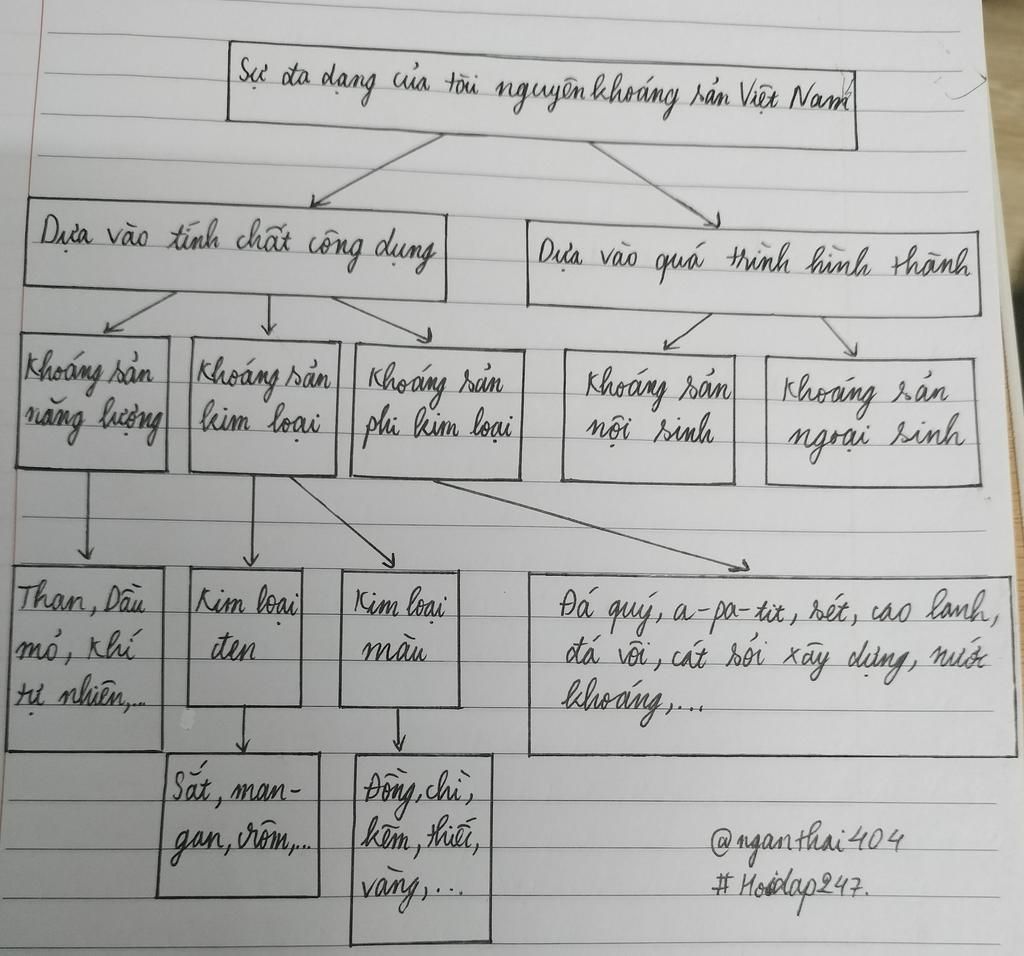 Sự đa dạng của tài nguyên khoáng sản Việt Nam
Dựa vào tính chất công dụng
Dựa vào quá trình hình thành
Khoáng sản
năng lượng
Khoáng sản
kim loại
Khoáng sản
phi kim loại
Khoáng sản
nội sinh
Khoáng sản
ngoại sinh
Than, Dầu
mỏ, khí
tự nhiên,...
Kim loại
đen
Kim loại
màu
Đá quý, a-pa-tit, sét, cao lanh,
đá vôi, cát sỏi xây dựng, nước
khoáng,...
Sắt, man-
gan, crôm,...
Đồng, chì,
kẽm, thiếc,
vàng,...
@nganthai404
#Hoidap247.